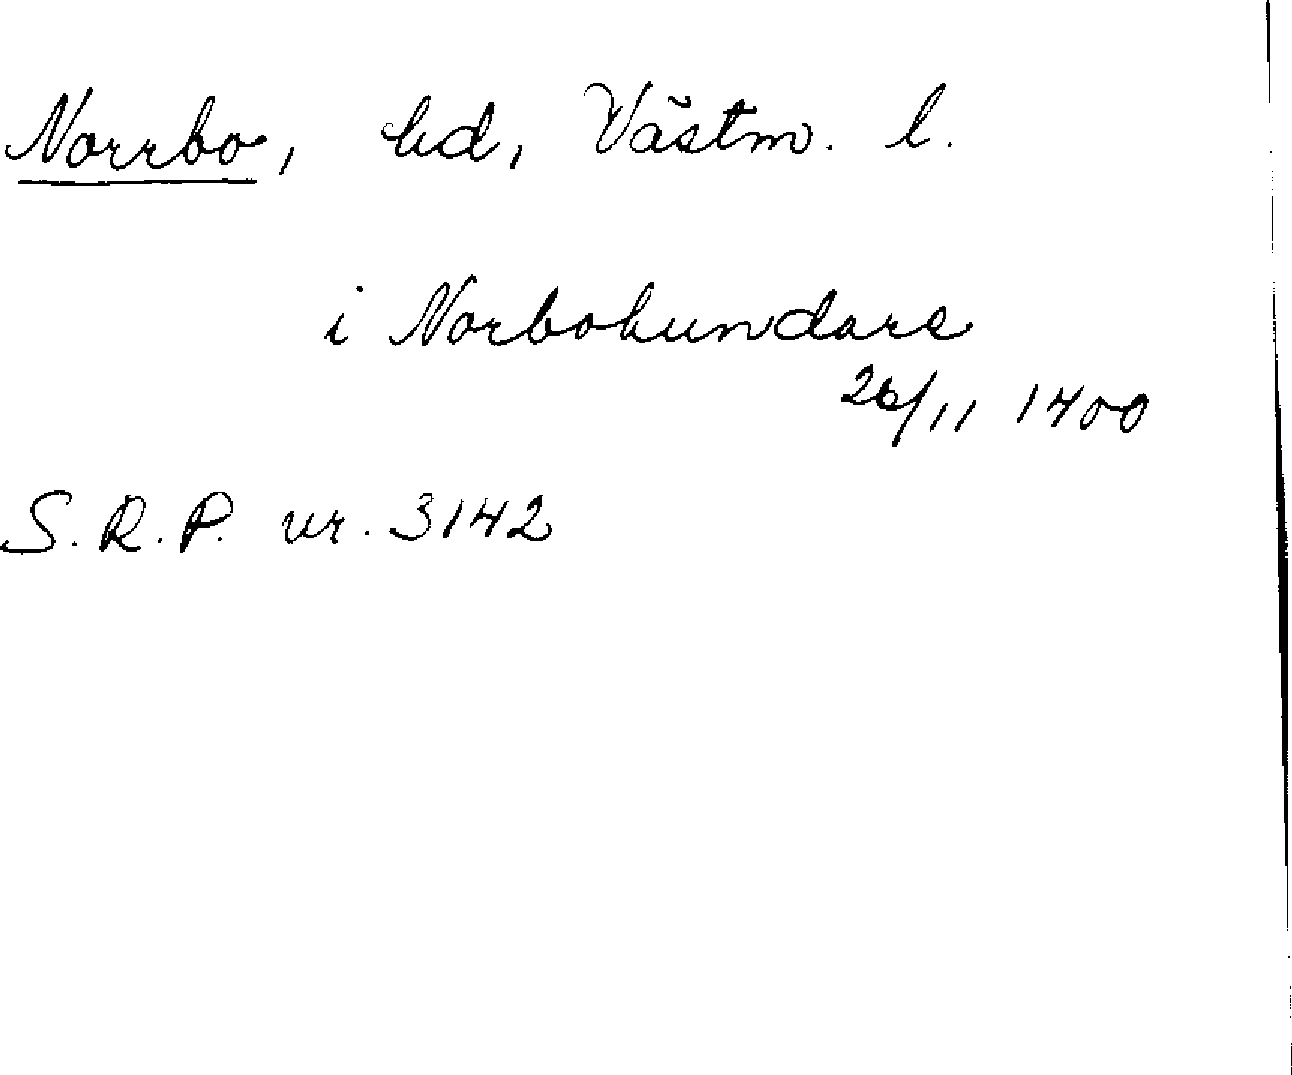 Norrbo, hd, Västm. l.
i Norbohundare
26/11 1400
S.R.P. nr. 3142